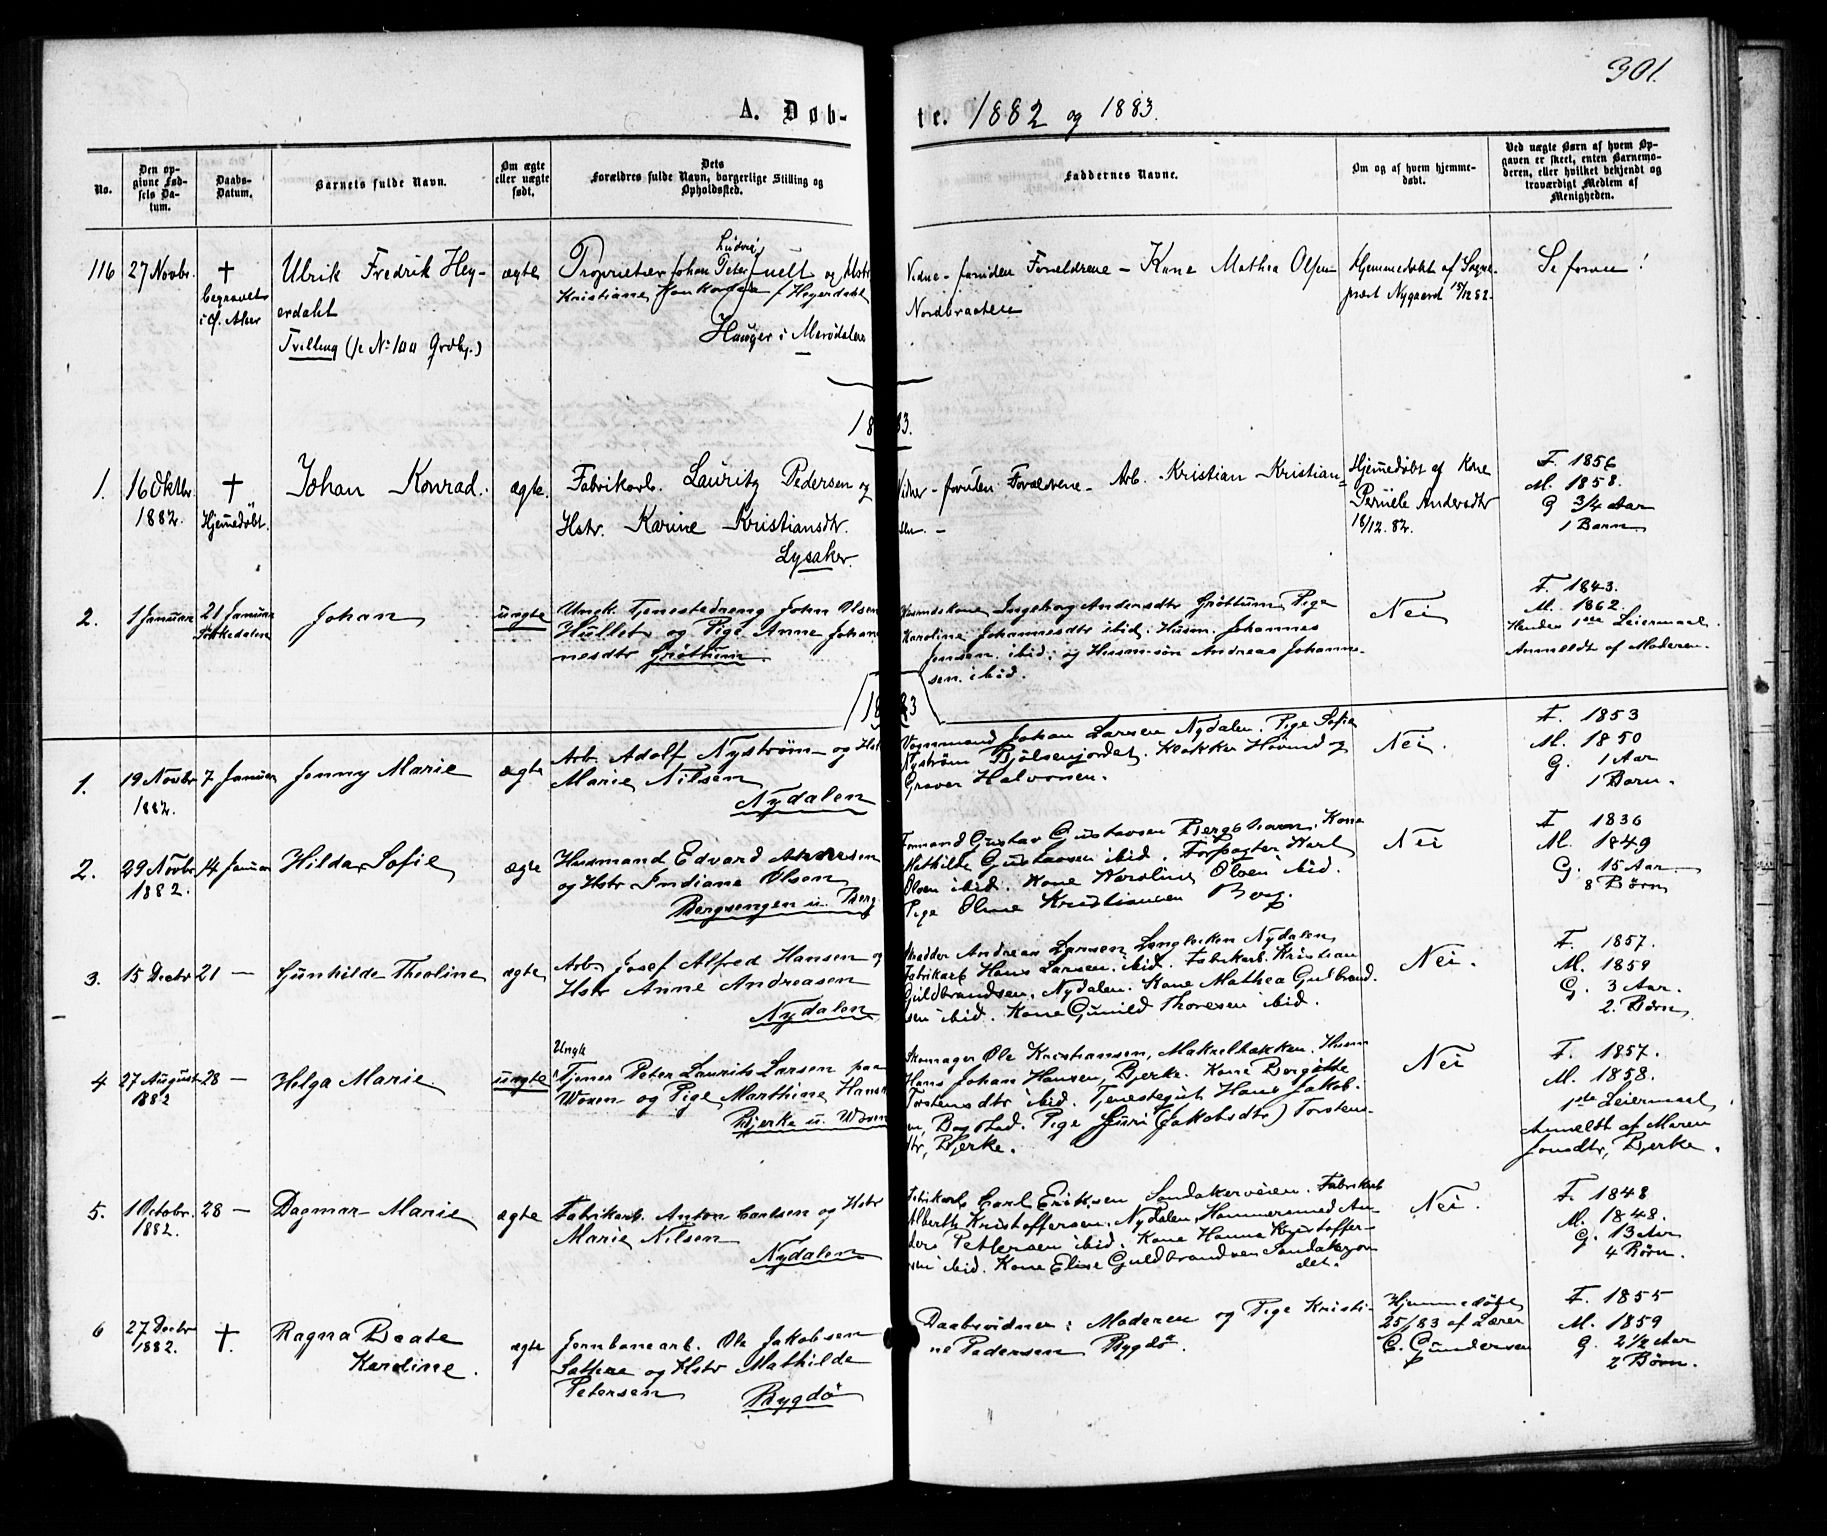 301.
A. Døb-
te. 1882 og 1883.
No.
Den op-
givne Fød-
sels Da-
tum.
Daabs-
Datum.
Barnets fulde Navn.
Om ægte
eller uægte
født.
Dets
Forældres fulde Navn, borgerlige Stilling og
Opholdssted.
Faddernes Navne.
Om og af hvem hjemme-
døbt.
Ved uægte Børn af hvem Op-
gaven er skeet, enten Barnemo-
deren, eller hvilket bekjendt og
troværdigt Medlem af
Menigheden.
116
27 Novbr.
†
begravet
i Ø. Aker
Ulrik Fredrik Hey-
erdahl
Tvilling
ægte
Proprietær Johan Peter Ludvig Juell og Hstr
Kristiane f. Heyerdahl
Hauger i Marидalen
Vidne foruden Forældrene – Kone Mathea Olsen
Nordbraaten
Hjemmedøbt af Sogne-
præst Nygaard 15/12 82.
Se foran!
1883.
1.
16 Oktbr.
1882.
†
Hjemedøbt.
Johan Konrad.
ægte.
Fabrikarb. Lauritz Pedersen og
Hstr. Karine Kristiansdtr.
Lysaker.
Vidner – foruten Forældrene – Arb. Kristian Kristian-
sen. –
Hjemedøbt af Kone
Pernele Andersdtr
16/12. 82.
F. 1856
M. 1858.
G 3/4 Aar
1 Barn
2.
1 Januar
21 Januar
Sørkedalen
Johan
uægte
Ungk. Tjenestedreng John Olsen
Hullet og Pige Anne Johan-
nesdtr Grøttum
Husmdskone Ingeborg Andersdtr Grøttum, Pige
Karoline Johannesdtr ibid, Husm. Johannes
Jensen ibid. og Husm.søn Andreas Johanne-
sen. ibid.
Nei
F. 1843.
M. 1862.
Hendes 1ste Leiermaal.
Anmeldt af Moderen.
1883
1.
19 Novbr
1882.
7 Januar
Jenny Marie
ægte
Arb. Adolf Nystrøm og Hstr
Marie Nilsen
Nydalen
Vognmand Johan Larsen Nydalen. Pige Sofie
Nystrøm Bjølsenjordet. Klokker Hovind og
Graver Halvorsen.
Nei.
F. 1853
M. 1850
G. 1 Aar
1 Barn.
2.
29 Novbr
1882.
14 Januar
Hilda Sofie
ægte
Husmand Edvard Andresen
og Hstr Indiane Olsen
Bergsengen u. Berg
Formand Gustav Gustavsen Bergshavn. Kone
Mathilde Gustavsen ibid. Forpagter Karl
Olsen ibid. Kone Karoline Olsen ibid.
Pige Oline Kristiansen Berg.
Nei
F. 1836
M. 1849
G. 15 Aar
8 Børn
3.
15 Decbr
21 –
Gunhilda Theoline
ægte
Arb. Josef Alfred Hansen og
Hstr Anne Andreasen
Nydalen
Skrædder Andreas Larsen, Langløkken Nydalen,
Fabrikarb Hans Larsen, ibid. Fabrikarb. Kristian
Guldbrandsen, Nydalen. Kone Mathea Guldbrand-
sen ibid. Kone Gunild Thoresen ibid.
Nei.
F. 1857.
M. 1859
G. 3 Aar.
2 Børn
4
27 August
1882
28 –
Helga Marie
uægte
Ungk
Tjener Peter Laurits Larsen paa
Woxen og Pige Marthine Hansen
Bjerke u. Woxen
Skomager Ole Kristiansen, Makrelbækken. Husm
Hans Johan Hansen, Bjerke. Kone Bergitte
Torstensdtr ibid. Tjenestegut Hans Jakob-
sen, Bogstad. Pige Guri (Jakobsdtr) Torstens-
dtr, Bjerke.
Nei
F. 1857.
M. 1858.
1ste Leiermaal,
Anmeldt af Maren
Jonsdtr, Bjerke.
5.
1 Octobr.
1882.
28 –
Dagmar Marie
ægte
Fabrikarb. Anton Carlsen og Hstr
Marie Nilsen
Nydalen
Fabrikarb. Carl Eriksen Sandakerveien. Fabrikarb
Alberth Kristoffersen, Nydalen, Hammersmed An-
ders Pettersen ibid. Kone Hanna Kristoffer-
sen ibid. Kone Elise Guldbrandsen Sandakerjor
det.
Nei.
F. 1848
M. 1848.
G. 13 Aar
4 Børn.
6
27 Decbr
1882.
†.
Ragna Beate
Karoline.
ægte
Jernbanearb. Ole Jakobsen
Sættre og Hstr Mathilde
Petersen
Bygdø
Daabsvidner: Moderen og Pige Kristi-
ne Pedersen Bygdø
Hjemmedøbt
25/1 83 af Lærer
C. Gundersen
F. 1855
M. 1859
G. 2 1/2 Aar
2 Børn.